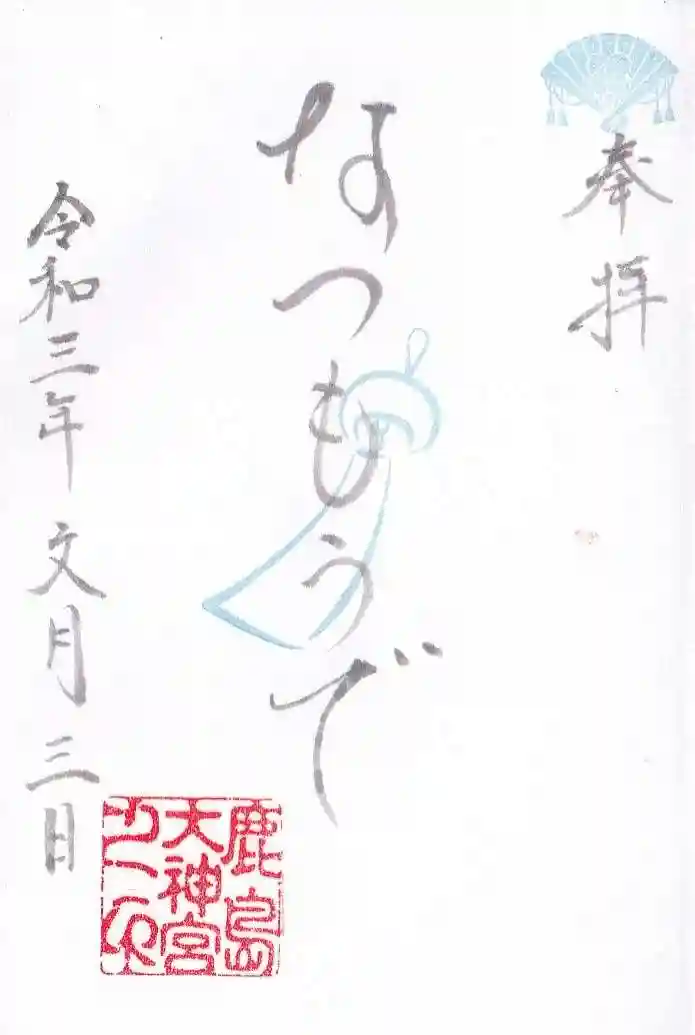 奉拝
なつもうで
令和三年 文月 三日
鹿島
大神宮